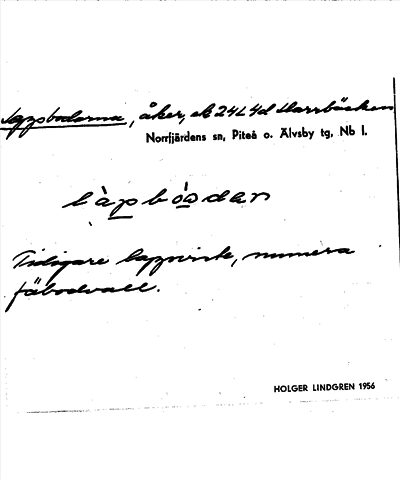 Lappbodarna, åker, ek 24L4d Harrbäcken
Norrfjärdens sn, Piteå o. Älvsby tg, Nb l.
làpbóodan
Tidigare lappvist, numera
fäbodvall.
HOLGER LINDGREN 1956